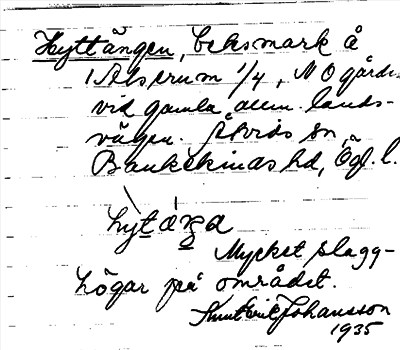 Hyttängen, beksmark å
1 Alserum 1/4, NO gården
vid gamla allm. lands-
vägen. Åtvids sn,
Bankekinds hd, Ög. l.
hytäŋa
Mycket slagg-
högar på området.
Knut Erik Johansson
1935